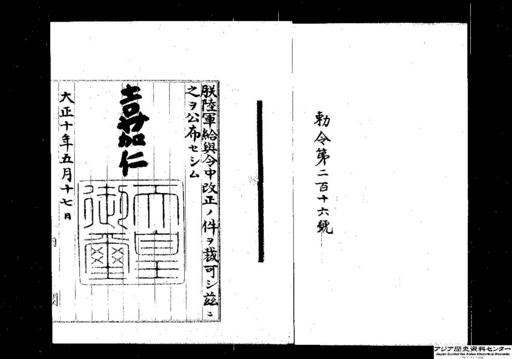 勅令第二百十六號
朕陸軍給與令中改正ノ件ヲ裁可シ茲ニ
之ヲ公布セシム
嘉仁
天皇御璽
大正十年五月十七日
アジア歴史資料センター
Japan Center for Asian Historical Records